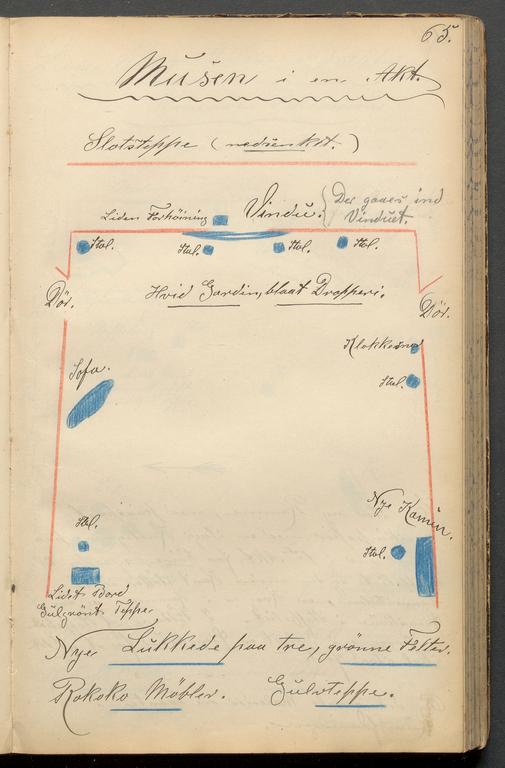 65.
Musen i en Akt.
Slotsteppe (nedsænket.)
Liden Forhöining
Vindu.
Der gaaes ind
Vinduet.
Stol.
Stol.
Stol.
Stol.
Dör.
Hvid Gardin, blaat Drapperi.
Dör.
Klokkesnor
Sofa.
Stol.
Nye Kamin.
Stol.
Stol.
Lidet Bord
Gulgrönt Teppe
Nye Lukkede paa tre, grönne Felter.
Rokoko Möbler. Gulvteppe.